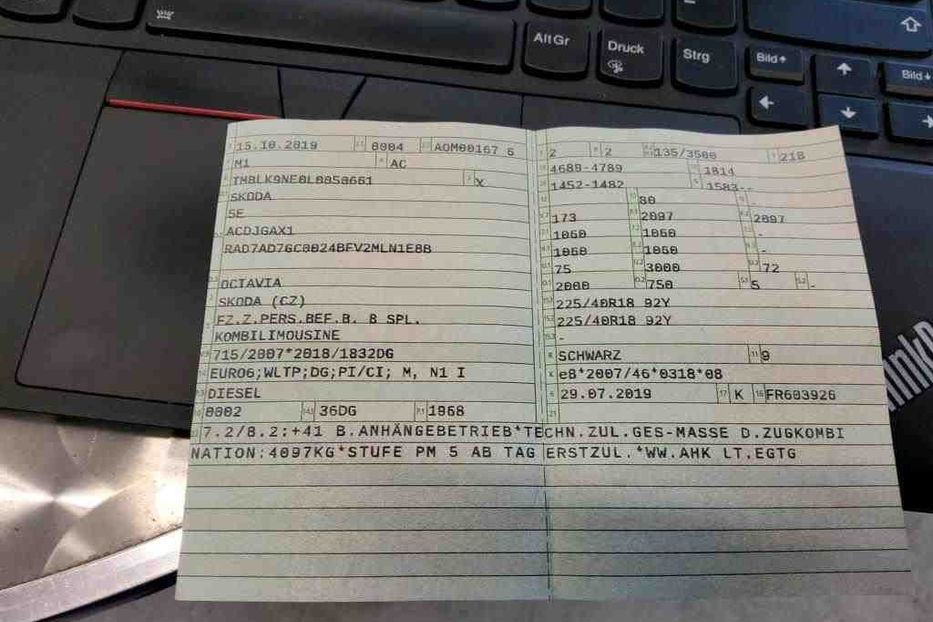 AltGr
Druck
Strg
Bild
Bild
15.10.2019 0004 AOM00167 6
M1 AC
X
SKODA
SE
ACDJGAX1
RAD7AD7GC0024BFV2MLN1E8B
OCTAVIA
SKODA (CZ)
FZ.Z.PERS.BEF.B. 8 SPL.
KOMBILIMOUSINE
715/2007*2018/1832DG
EURO6;WLTP;DG;PI/CI; M, N1 I
DIESEL
0002 36DG 1968
2 2 135/3500 218
4689-4789 1814
1452-1482 1583--
80
173 2097 2097
1060 1060 -
1060 1060 -
75 3000 72
2000 750 5 -
225/40R18 92Y
225/40R18 92Y
-
SCHWARZ 9
e8*2007/46*0318*08
29.07.2019 K FR603926
7.2/8.2:+41 B.ANHÄNGEBETRIEB*TECHN.ZUL.GES-MASSE D.ZUGKOMBI
NATION:4097KG*STUFE PM 5 AB TAG ERSTZUL.*WW.AHK LT.EGTG